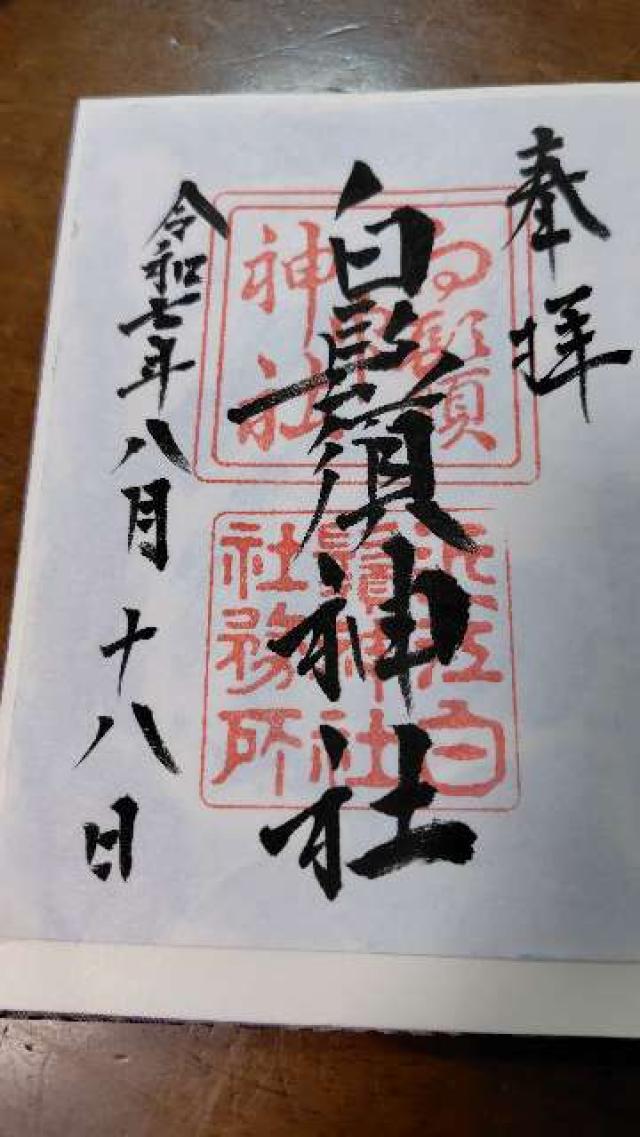 奉拝
白鬚神社
令和七年八月十八日
白鬚
神社
白
鬚神社
社務所